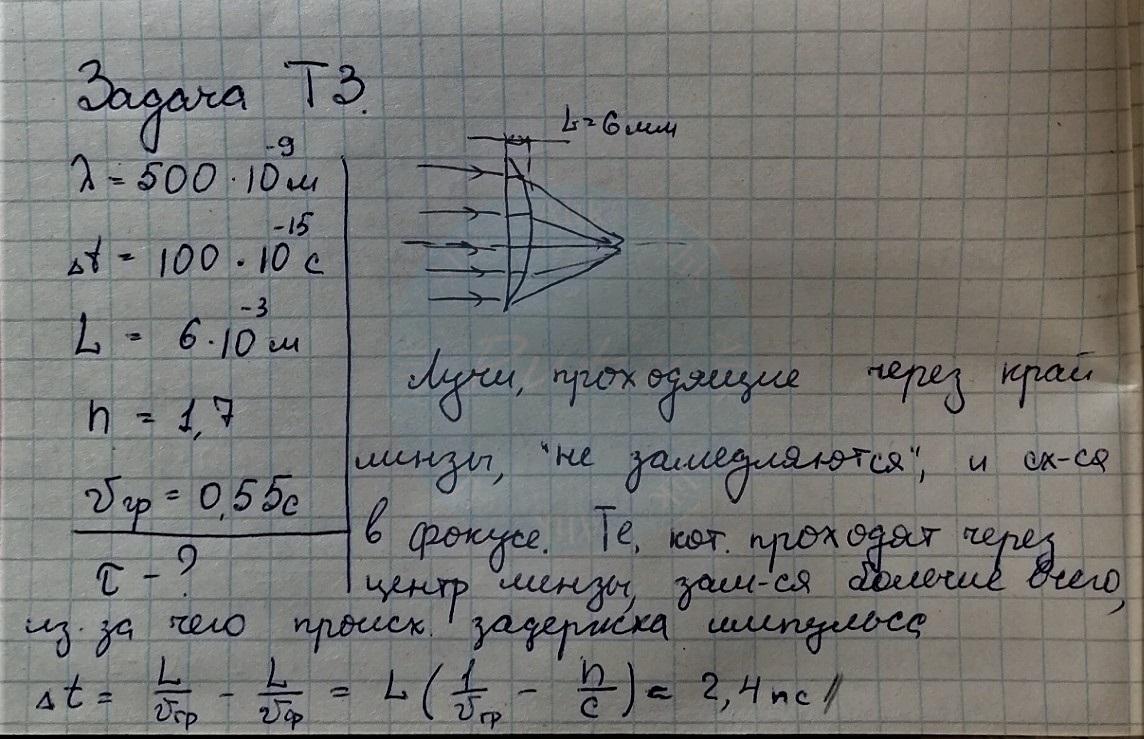 Задача Т3.
L = 6 мм
λ = 500 · 10⁻⁹ м
Δt = 100 · 10⁻¹⁵ с
L = 6 · 10⁻³ м
n = 1,7
vгр = 0,55c
τ - ?
Лучи, проходящие через край
линзы, "не замедляются", и сх-ся
в фокусе. Те, кот. проходят через
центр линзы, зам-ся более всего,
из за чего происх. задержка импульса
Δt = L/vгр - L/vф = L (1/vгр - n/c) = 2,4 пс //